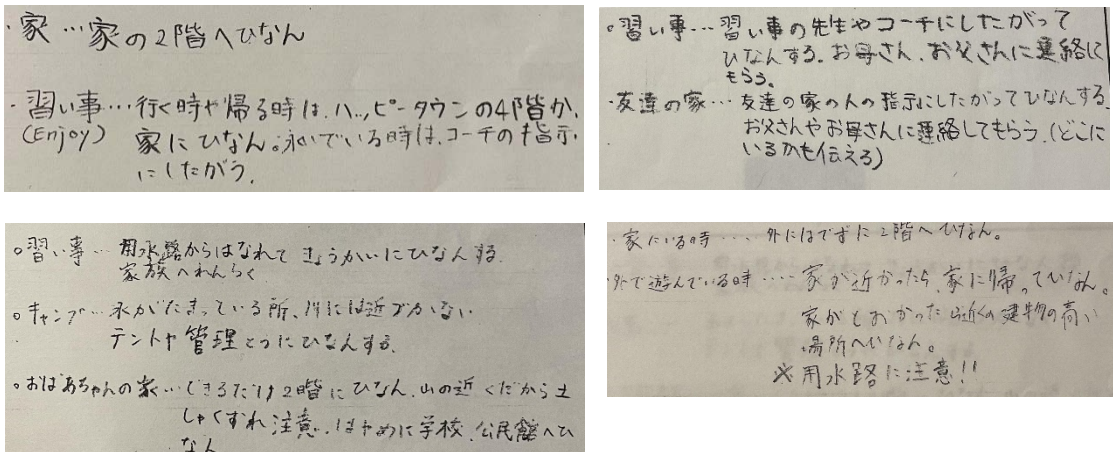 ・家…家の2階へひなん
・習い事…行く時や帰る時は、ハッピータウンの4階か、
(Enjoy) 家にひなん。泳いでいる時は、コーチの指示
にしたがう。
。習い事…習い事の先生やコーチにしたがって
ひなんする。お母さん、お父さんに連絡して
もらう。
・友達の家…友達の家の人の指示にしたがってひなんする
お父さんやお母さんに連絡してもらう。(どこに
いるかも伝える)
。習い事…用水路からはなれて きょうかいにひなんする
家族へれんらく
。キャンプ…水がたまっている所、川には近づかない
テントや管理とうにひなんする。
。おばあちゃんの家…できるだけ2階にひなん。山の近くだから土
しゃくずれ注意。はやめに学校、公民館へひ
なん
・家にいる時……外にはでずに2階へひなん。
・外で遊んでいる時……家が近かったら、家に帰ってひなん。
家がとおかったら近くの建物の高い
場所へひなん。
※用水路に注意!!